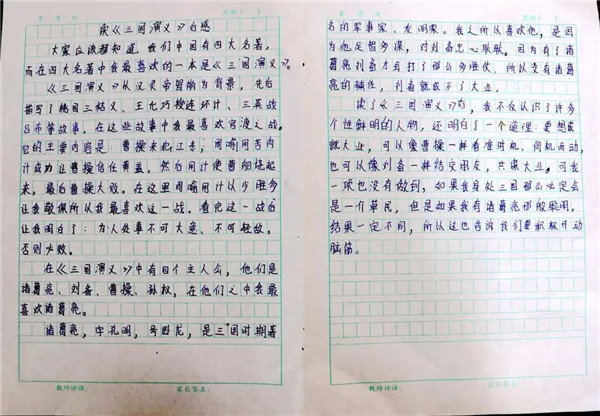 读《三国演义》有感
大家应该都知道，我们中国有四大名著，
而在四大名著中我最喜欢的一本是《三国演义》。
《三国演义》从汉灵帝望始为背景，先后
描写了桃园三结义、王允巧授连环计、三英战
吕布等故事。在这些故事中我最喜欢官渡之战，
它的主要内容是：曹操来犯江东，周瑜用苦肉
计成功让曹操信任黄盖，然后用计使曹船烧起
来，最后曹操大败。在这里周瑜用计以少胜多
让我敬佩所以我最喜欢这一战。看完这一战后
让我明白了：为人处事不可大意、不可轻敌，
否则必败。
在《三国演义》中有四个主人公，他们是
诸葛亮、刘备、曹操、孙权，在他们之中我最
喜欢诸葛亮。
诸葛亮，字孔明，号卧龙，是三国时期著
名的军事家、发明家。我之所以喜欢他，是因
为他足智多谋，对刘备忠心耿耿。因为有了诸
葛亮刘备才会打了那么多胜仗，所以没有诸葛
亮的辅佐，刘备就成不了大业。
读了《三国演义》后，我不仅认识了许多
个性鲜明的人物，还明白了一个道理：要想成
就大业，可以像曹操一样看准时机、伺机而动，
也可以像刘备一样结交朋友，共谋大业。可我
一项也没有做到，如果我身处三国那么必定会
是一个草民，但是如果我有诸葛亮那般聪明，
结果一定不同，所以这也告诉我们要积极开动
脑筋。
教师评语：
家长签名：
教师评语：
家长签名：